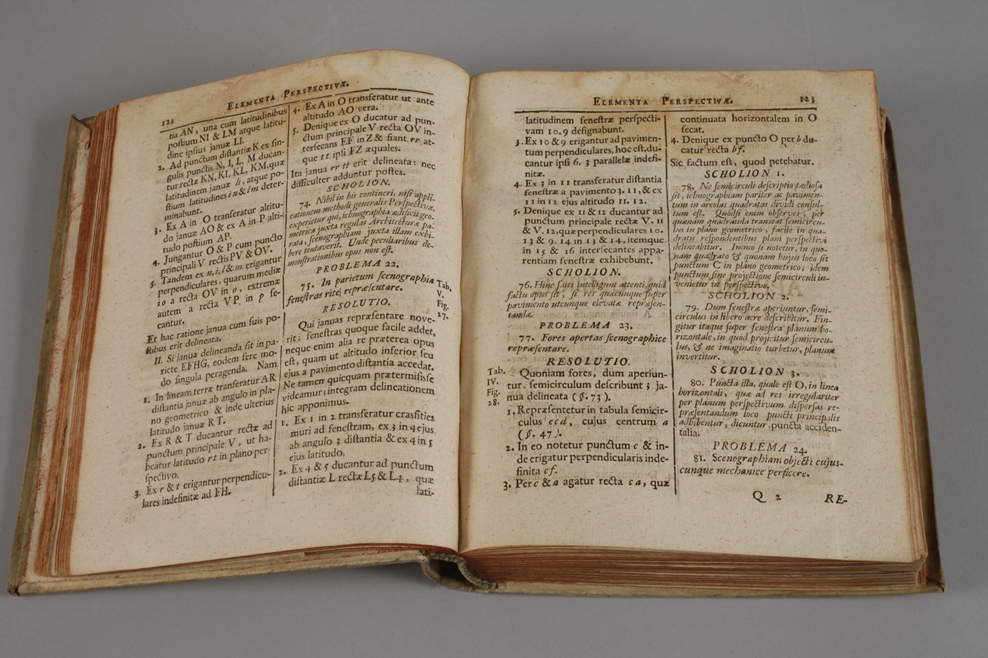 122
ELEMENTA PERSPECTIVÆ.
tia AN, una cum latitudinibus
postium NI & LM atque latitu-
dine ipsius januæ LI.
2. Ad punctum distantiæ K ex sin-
gulis punctis N, I, L, M ducan-
tur rectæ KN, KI, KL, KM, quæ
latitudinem januæ li, atque po-
stium latitudines in & lm deter-
minabunt.
3. Ex A in O transferatur altitu-
do januæ AO & ex A in P alti-
tudo postium AP.
4. Jungantur O & P cum puncto
principali V rectis PV & OV.
5. Tandem ex n, i, l & m erigantur
perpendiculares, quarum mediæ
io a recta OV in o, extremæ
autem a recta VP, in p se-
cantur.
Et hac ratione janua cum suis po-
stibus erit delineata.
II. Si janua delineanda sit in pa-
riete EFHG, eodem fere mo-
do singula peragenda. Nam
1. In lineam terræ transferatur AR
distantia januæ ab angulo in pla-
no geometrico & inde ulterius
latitudo januæ RT.
2. Ex R & T ducantur rectæ ad
punctum principale V, ut ha-
beatur latitudo rt in plano per-
spectivo.
3. Ex r & t erigantur perpendicu-
lares indefinitæ ad FH.
4. Ex A in O transferatur ut ante
altitudo AO vera.
5. Denique ex O ducatur ad pun-
ctum principale V recta OV in-
tersecans EF in Z & fiant rr at-
que tt ipsi FZ æquales.
Ita janua rr tt erit delineata: nec
difficulter adduntur postes.
SCHOLION.
74. Nihil his contineri, nisi appli-
cationem methodi generalis Perspectivæ,
experietur qui, ichnographia ædificii geo-
metrica juxta regulas Architecturæ pa-
rata, scenographiam juxta illam exhi-
bere tentaverit. Unde peculiaribus de-
monstrationibus opus non est.
PROBLEMA 22.
75. In parietum scenographia
fenestras rite repræsentare.
Tab.
V.
Fig.
27.
RESOLUTIO.
Qui januas repræsentare nove-
rit; fenestras quoque facile addet,
neque enim alia re præterea opus
est, quam ut altitudo inferior seu
ejus a pavimento distantia accedat.
Ne tamen quicquam prætermisisse
videamur; integram delineationem
hic apponimus.
1. Ex 1 in 2 transferatur crassities
muri ad fenestram, ex 3 in 4 ejus
ab angulo 3 distantia & ex 4 in 5
ejus latitudo.
2. Ex 4 & 5 ducantur ad punctum
distantiæ L rectæ L5 & L4, quæ
lati-
ELEMENTA PERSPECTIVÆ.
123
latitudinem fenestræ perspecti-
vam 10. 9 designabunt.
3. Ex 10 & 9 erigantur ad pavimen-
tum perpendiculares, hoc est, du-
cantur ipsi 6. 3 parallelæ indefi-
nitæ.
4. Ex 3 in 11 transferatur distantia
fenestræ a pavimento 3. 11, & ex
11 in 12 ejus altitudo 11. 12.
5. Denique ex 11 & 12 ducantur ad
punctum principale rectæ V. 11
& V. 12, quæ perpendiculares 10.
13 & 9. 14 in 13 & 14, itemque
in 15 & 16 intersecantes appa-
rentiam fenestræ exhibebunt.
SCHOLION.
76. Hinc satis intelligunt attenti, quid
factu opus sit, si res quæcunque super
pavimento utcunque elevatæ repræsen-
tandæ.
PROBLEMA 23.
77. Fores apertas scenographice
repræsentare.
RESOLUTIO.
Tab.
IV.
Fig.
28.
Quoniam fores, dum aperiun-
tur, semicirculum describunt; ja-
nua delineata (§. 73).
1. Repræsentetur in tabula semicir-
culus ecd, cujus centrum a
(§. 47).
2. In eo notetur punctum c & in-
de erigatur perpendicularis inde-
finita cf.
3. Per c & a agatur recta ca, quæ
continuata horizontalem in O
secat.
4. Denique ex puncto O per b du-
catur recta bf.
Sic factum est, quod petebatur.
SCHOLION 1.
78. Ne semicirculi descriptio tædiosa
sit, ichnographiam pariter ac pavimen-
tum in areolas quadratas dividi consul-
tum est. Quodsi enim observes, per
quænam quadratula transeat semicircu-
lus in plano geometrico, facile in qua-
dratis respondentibus plani perspectivi
delineabitur. Immo si notetur, in quo-
nam quadrato & quonam hujus loco sit
punctum C in plano geometrico; idem
punctum sine projectione semicirculi in-
venietur in perspectivo.
SCHOLION 2.
79. Dum fenestræ aperiuntur, semi-
circulus in libero aere describitur. Fin-
gitur itaque super fenestra planum ho-
rizontale, in quod projicitur semicircu-
lus, & ne imaginatio turbetur, planum
invertitur.
SCHOLION 3.
80. Puncta illa, quale est O, in linea
horizontali, quæ ad res irregulariter
per planum perspectivum dispersas re-
præsentandum loco puncti principalis
adhibentur, dicuntur puncta acciden-
talia.
PROBLEMA 24.
81. Scenographiam objecti cujus-
cunque mechanice perficere.
Q 2
RE-